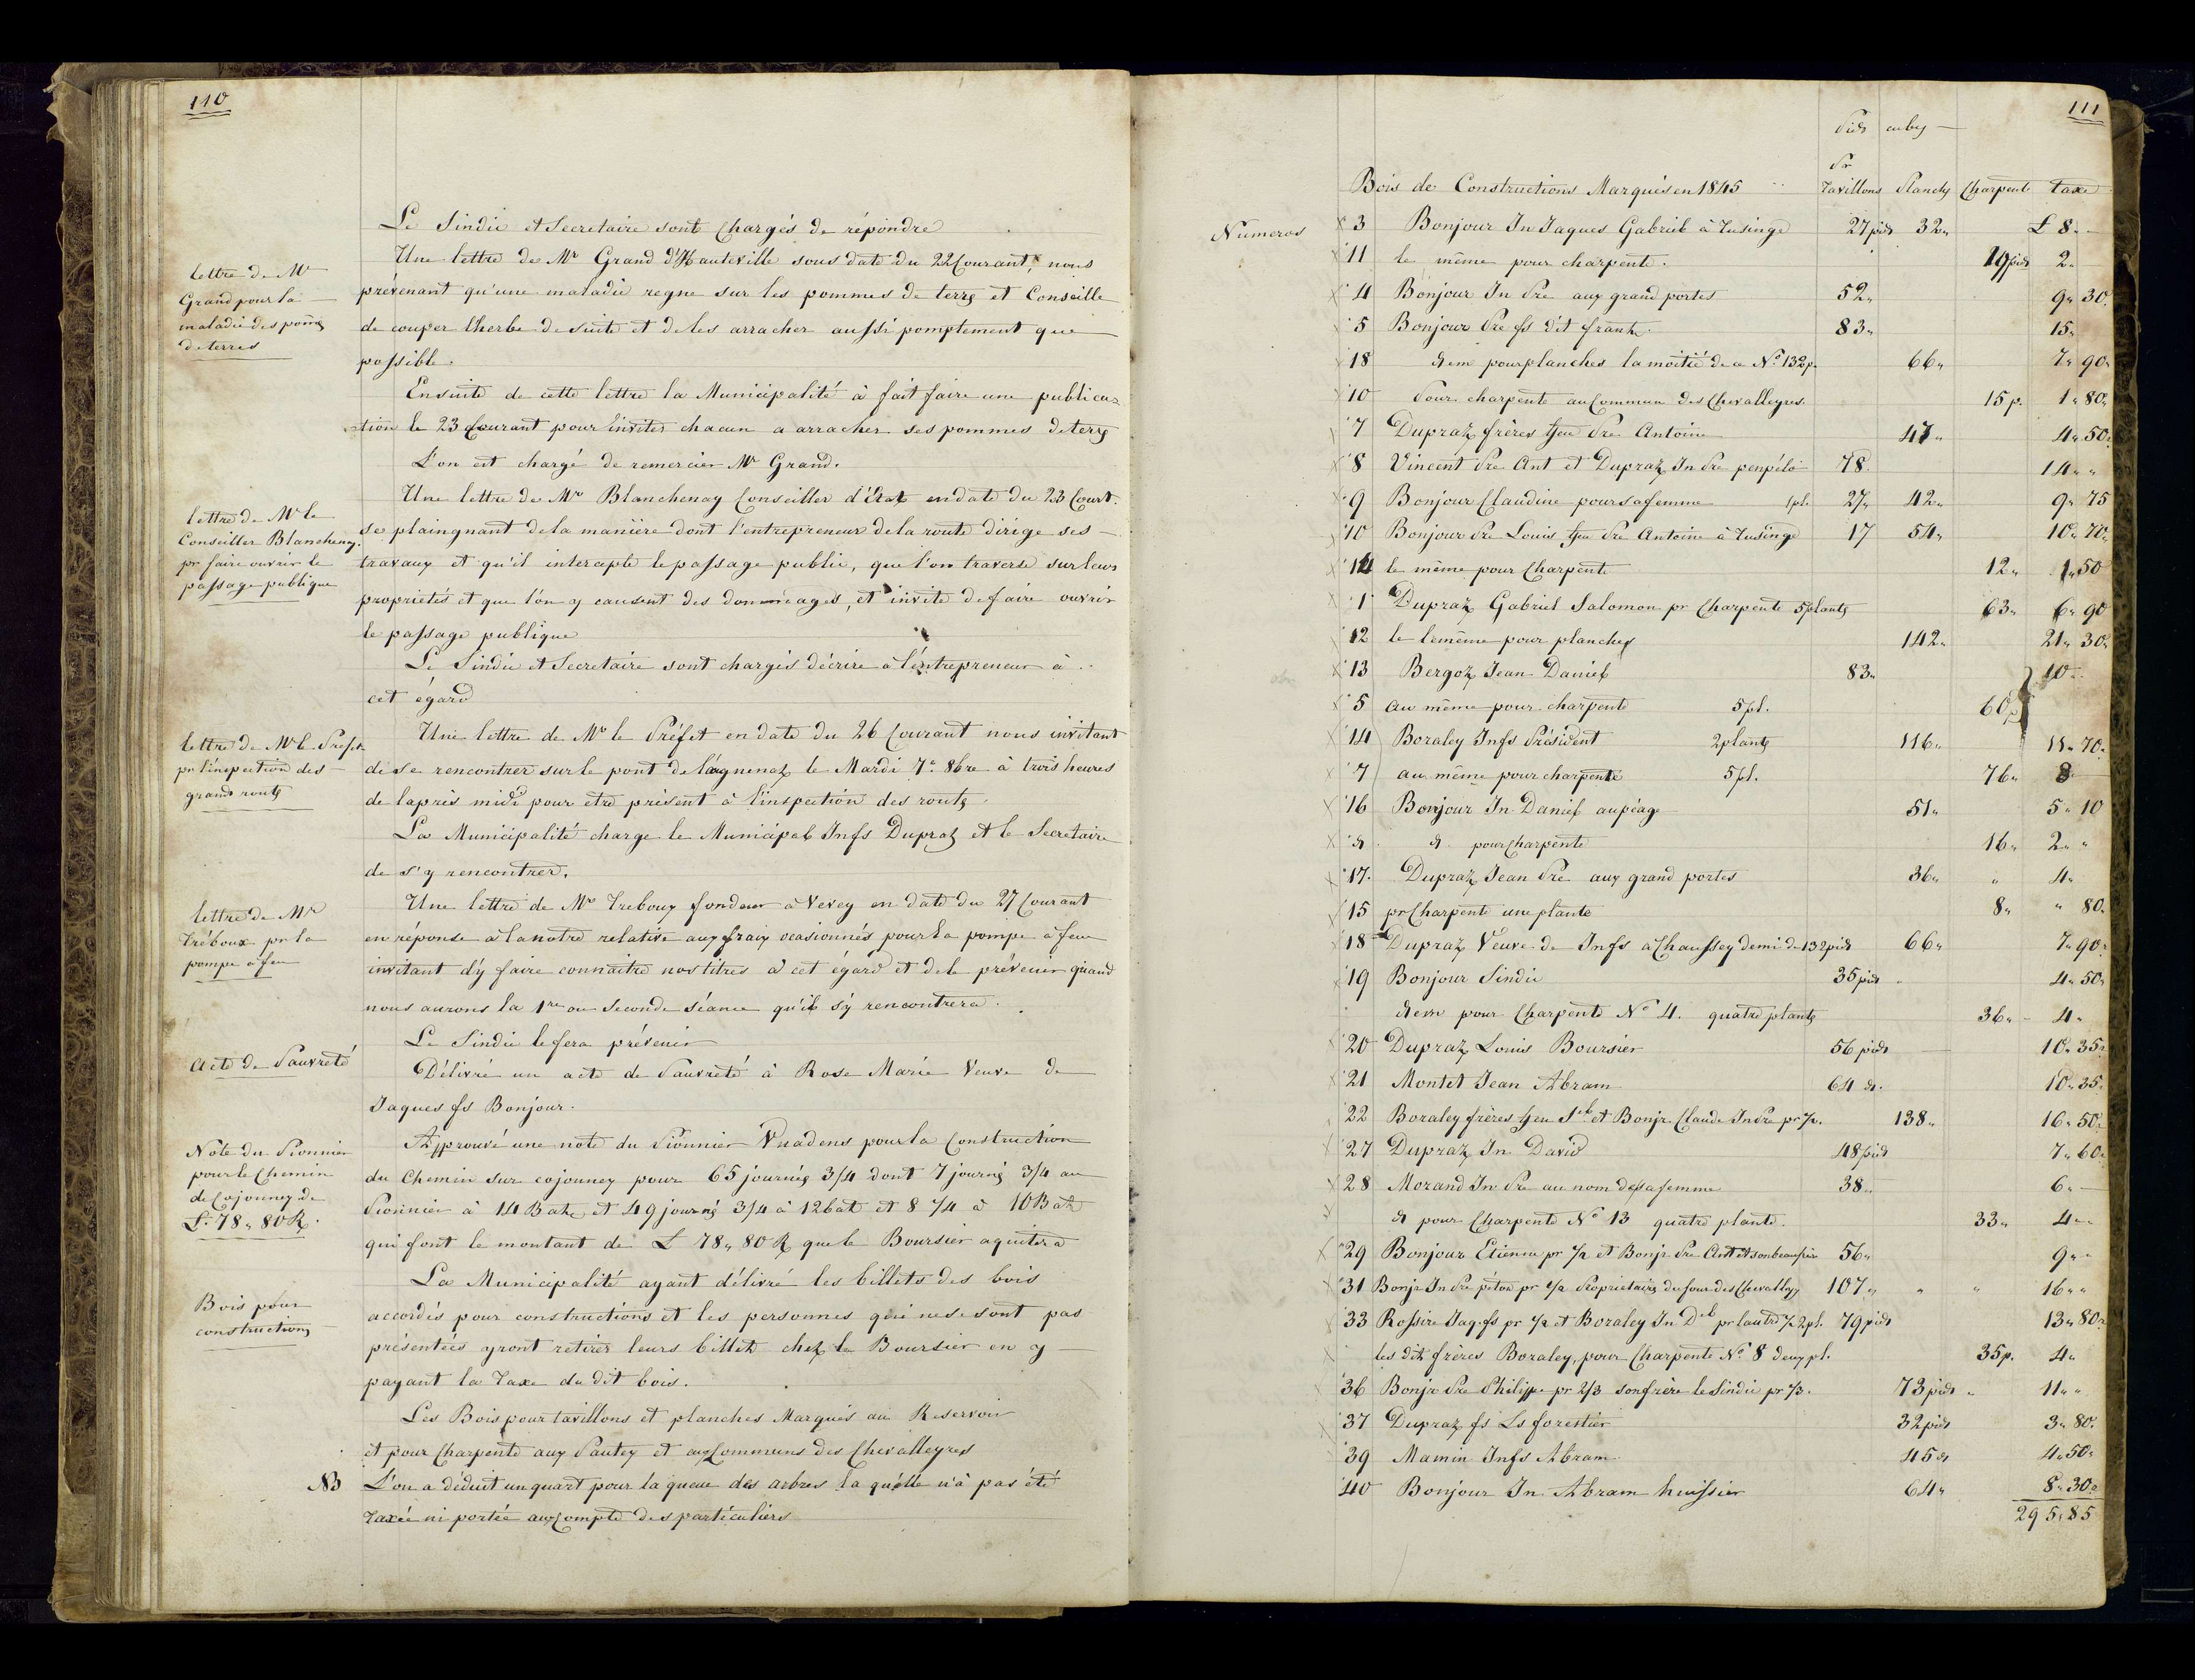 110
Le Sindic et Secretaire sont Chargés de répondre
lettre de Mr
Grand pour la
maladie des pom̃es
de terres
Une lettre de Mr Grand d'Hauteville sous date du 22 Courant, nous
prévenant qu'une maladie regne sur les pommes de terre et Conseille
de couper l'herbe de suite et de les arracher aussi pomptement que
possible.
Ensuite de cette lettre la Municipalité à fait faire une publica=
tion le 23 Courant pour inviter chacun a arracher ses pommes de terre
L'on est chargé de remercier Mr Grand.
lettre de Mr le
Conseiller Blanchenay
pr faire ouvrir le
passage publique
Une lettre de Mr Blanchenay Conseiller d'État en date du 23 Court.
se plaingnant de la manière dont l'entrepreneur de la route dirige ses
travaux et qu'il intercepte le passage public, que l'on traverse sur leurs
proprietés et que l'on y causent des dommeages, et invite de faire ouvrir
le passage publique
Le Sindic et Secretaire sont chargés décrire à l'entrepreneur à
cet égard
lettre de Mr le Préfet
pr l'inspection des
grands routes
Une lettre de Mr le Préfet en date du 26 Courant nous invitant
de se rencontrer sur le pont de l'ognonaz le Mardi 7e 8bre à trois heures
de laprès midi pour etre présent à l'inspection des routes.
La Municipalité charge le Municipal Jnfs Dupraz et le Secretaire
de s'y rencontrer.
lettre de Mr
Tréboux pr la
pompe à feu
Une lettre de Mr Treboux fondeur à Vevey en date du 27 Courant
en réponse à la notre relative aux fraix ocasionnés pour la pompe à feu
invitant d'y faire connaitre nos titres à cet égard et de le prévenir quand
nous aurons la 1re ou Seconde séance qu'il s'y rencontrera.
Le Sindic le fera prévenir
Acte de Pauvreté
Délivré un acte de Pauvreté à Rose Marie Veuve de
Jaques fs Bonjour.
Note du Pionnier
pour le Chemin
de Cojonney de
L. 78„ 80 R.
Approuvé une note du Pionnier Vuadens pour la Construction
du Chemin sur cojonney pour 65 journées 3/4 dont 7 journés 3/4 au
Pionnier à 14 Batz et 49 journés 3/4 à 12 bat et 8 1/4 à 10 Batz
qui font le montant de L 78„ 80 R que le Boursier aquitera
Bois pour
constructions
La Municipalité ayant délivré les billets des bois
accordés pour constructions et les personnes qui ne se sont pas
présentées yront retirer leurs billets chez le Boursier en y
payant la Taxe du dit bois.
Les Bois pour tavillons et planches Marqués au Reservoir
et pour Charpente aux Pautex et aux Communs des Chevalleyres
NB L'on a déduit un quart pour la queue des arbres la quelle n'à pas été
Taxée ni portée aux Compte des particuliers
111
Pieds cubes
Bois de Constructions Marqués en 1845 Pr Tavillons Planches Charpente taxe
Numeros
3 Bonjour Jn Jaques Gabriel à Tusinge 27 pids 32„ L 8„
11 le même pour charpente. 19 pids 2„
4 Bonjour Jn Pre aux grand portes 52„ 9„ 30.
5 Bonjour Pre fs dit frantz. 83„ 15„
18 dem pour planches la moitié de ce No 132 p. 66„ 7„ 90„
10 Pour charpente au Commun des Chevalleyres. 15 p. 1„ 80„
7 Dupraz frères feu Pre Antoine 47„ 4„ 50„
8 Vincent Pre Ant et Dupraz Jn Pre 78. 14„ „
9 Bonjour Claudine pour sa femme 1 pl. 27„ 42„ 9„ 75
10 Bonjour Pre Louis feu Pre Antoine à Tusinge 17 54„ 10„ 70„
14 le même pour Charpente 12„ 1„ 50
1 Dupraz Gabriel Salomon pr Charpente 5 plantes 63„ 6„ 90
12 le le même pour planches 142„ 21„ 30„
13 Bergoz Jean Daniel 83„ 10„
5 au même pour charpente 5 pl. 60 p
14 Boraley Jnfs Président 2 plantes 116„ 11„ 70„
7 au même pour charpente 5 pl. 76„ 8
16 Bonjour Jn Daniel au péage 51„ 5„ 10
d. d. pour Charpente 16„ 2„ „
17. Dupraz Jean Pre aux grand portes 36„ „ 4„
15 pr Charpente une plante 8„ „ 80„
18 Dupraz Veuve de Jnfs à Chaussey demi de 132 pids 66„ 7„ 90„
19 Bonjour Sindic 35 pids 4„ 50„
dem pour Charpente No 4. quatre plantes 36„ 4„
20 Dupraz Louis Boursier 56 pids 10„ 35„
21 Montet Jean Abram 64 d. 10„ 35„
22 Boraley frères feu Sel et Bonjr Claude Jn Pre pr 1/2. 138„ 16„ 50„
27 Dupraz Jn David 48 pids 7„ 60„
28 Morand Jn Pre au nom de sa femme 38„ 6„
d pour Charpente No 13 quatre plante. 33„ 4„
29 Bonjour Etienne pr 1/2 et Bonjr Pre Ant et son beaufrère 56„ 9„
31 Bonjr Jn Pre péton pr 1/2 Proprietaires du four des Chevalleys 107„ „ „ 16„ „
33 Rossire Jaq. fs pr 1/2 et Boraley Jn Del pr lautre 1/2 2 pl. 79 pids 13„ 80„
les dits frères Boraley, pour Charpente No 8 deux pl. 35 p. 4„
36 Bonjr Pre Philippe pr 2/3 son frère le Sindic pr 1/3. 73 pids „ 11„ „
37 Dupraz fs Ls forestier 32 pids 3„ 80„
39 Mamin Jnfs Abram. 45 d 4„ 50„
40 Bonjour Jn Abram huissier 64„ 8„ 30„
295„ 85